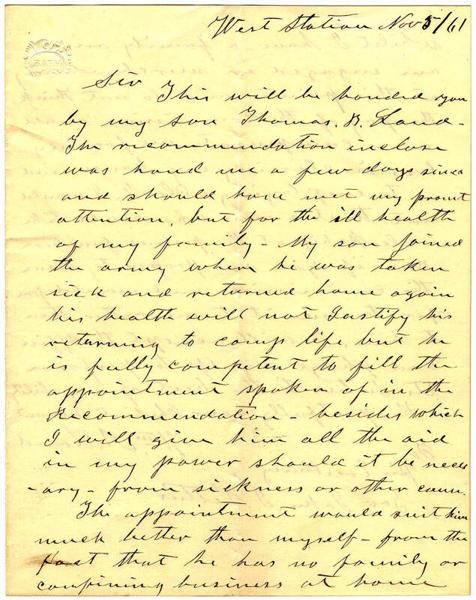 West Station Nov 5/61
Sir This will be handed you
by my son Thomas. B. Land-
The recommendation inclose
was hand me a few days since
and should have met my promt
attention, but for the ill health
of my family - My son joined
the army where he was taken
sick and returned home again
his health will not Justify his
returning to camp life but he
is fully competent to fill the
appointment spoken of in the
Recommendation - besides which
I will give him all the aid
in my power should it be necess
-ary - from sickness or other cause.
The appointment would suit him
much better than myself - from the
fact that he has no family or
confining business at home